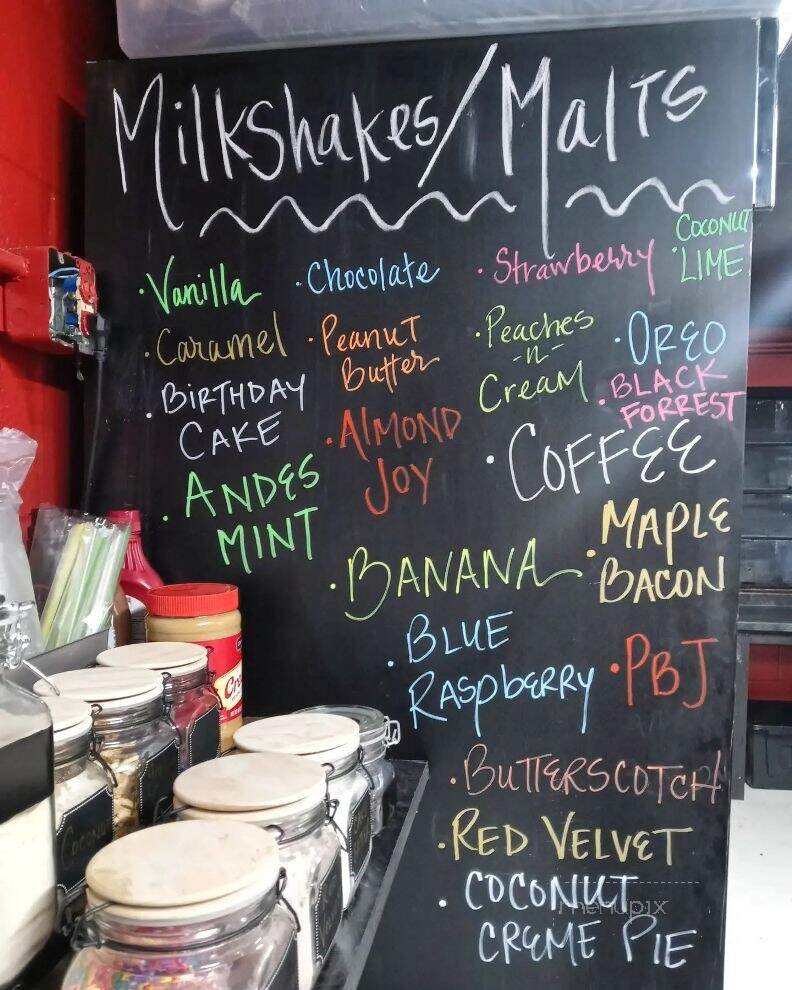 Milkshakes/Malts
·Vanilla ·Chocolate ·Strawberry ·Coconut
LIME
·Caramel ·Peanut
Butter ·Peaches
-n-
Cream ·OREO
·BIRTHDAY
CAKE ·Almond
Joy ·BLACK
FORREST
·COFFEE
·ANDES
MINT
·MAPLE
BACON
·BANANA
·BLUE
RASpbERRY
·PBJ
·BUTTERSCOTCH
·RED VELVET
·COCONUT
CREME PIE
menupix
Coconut